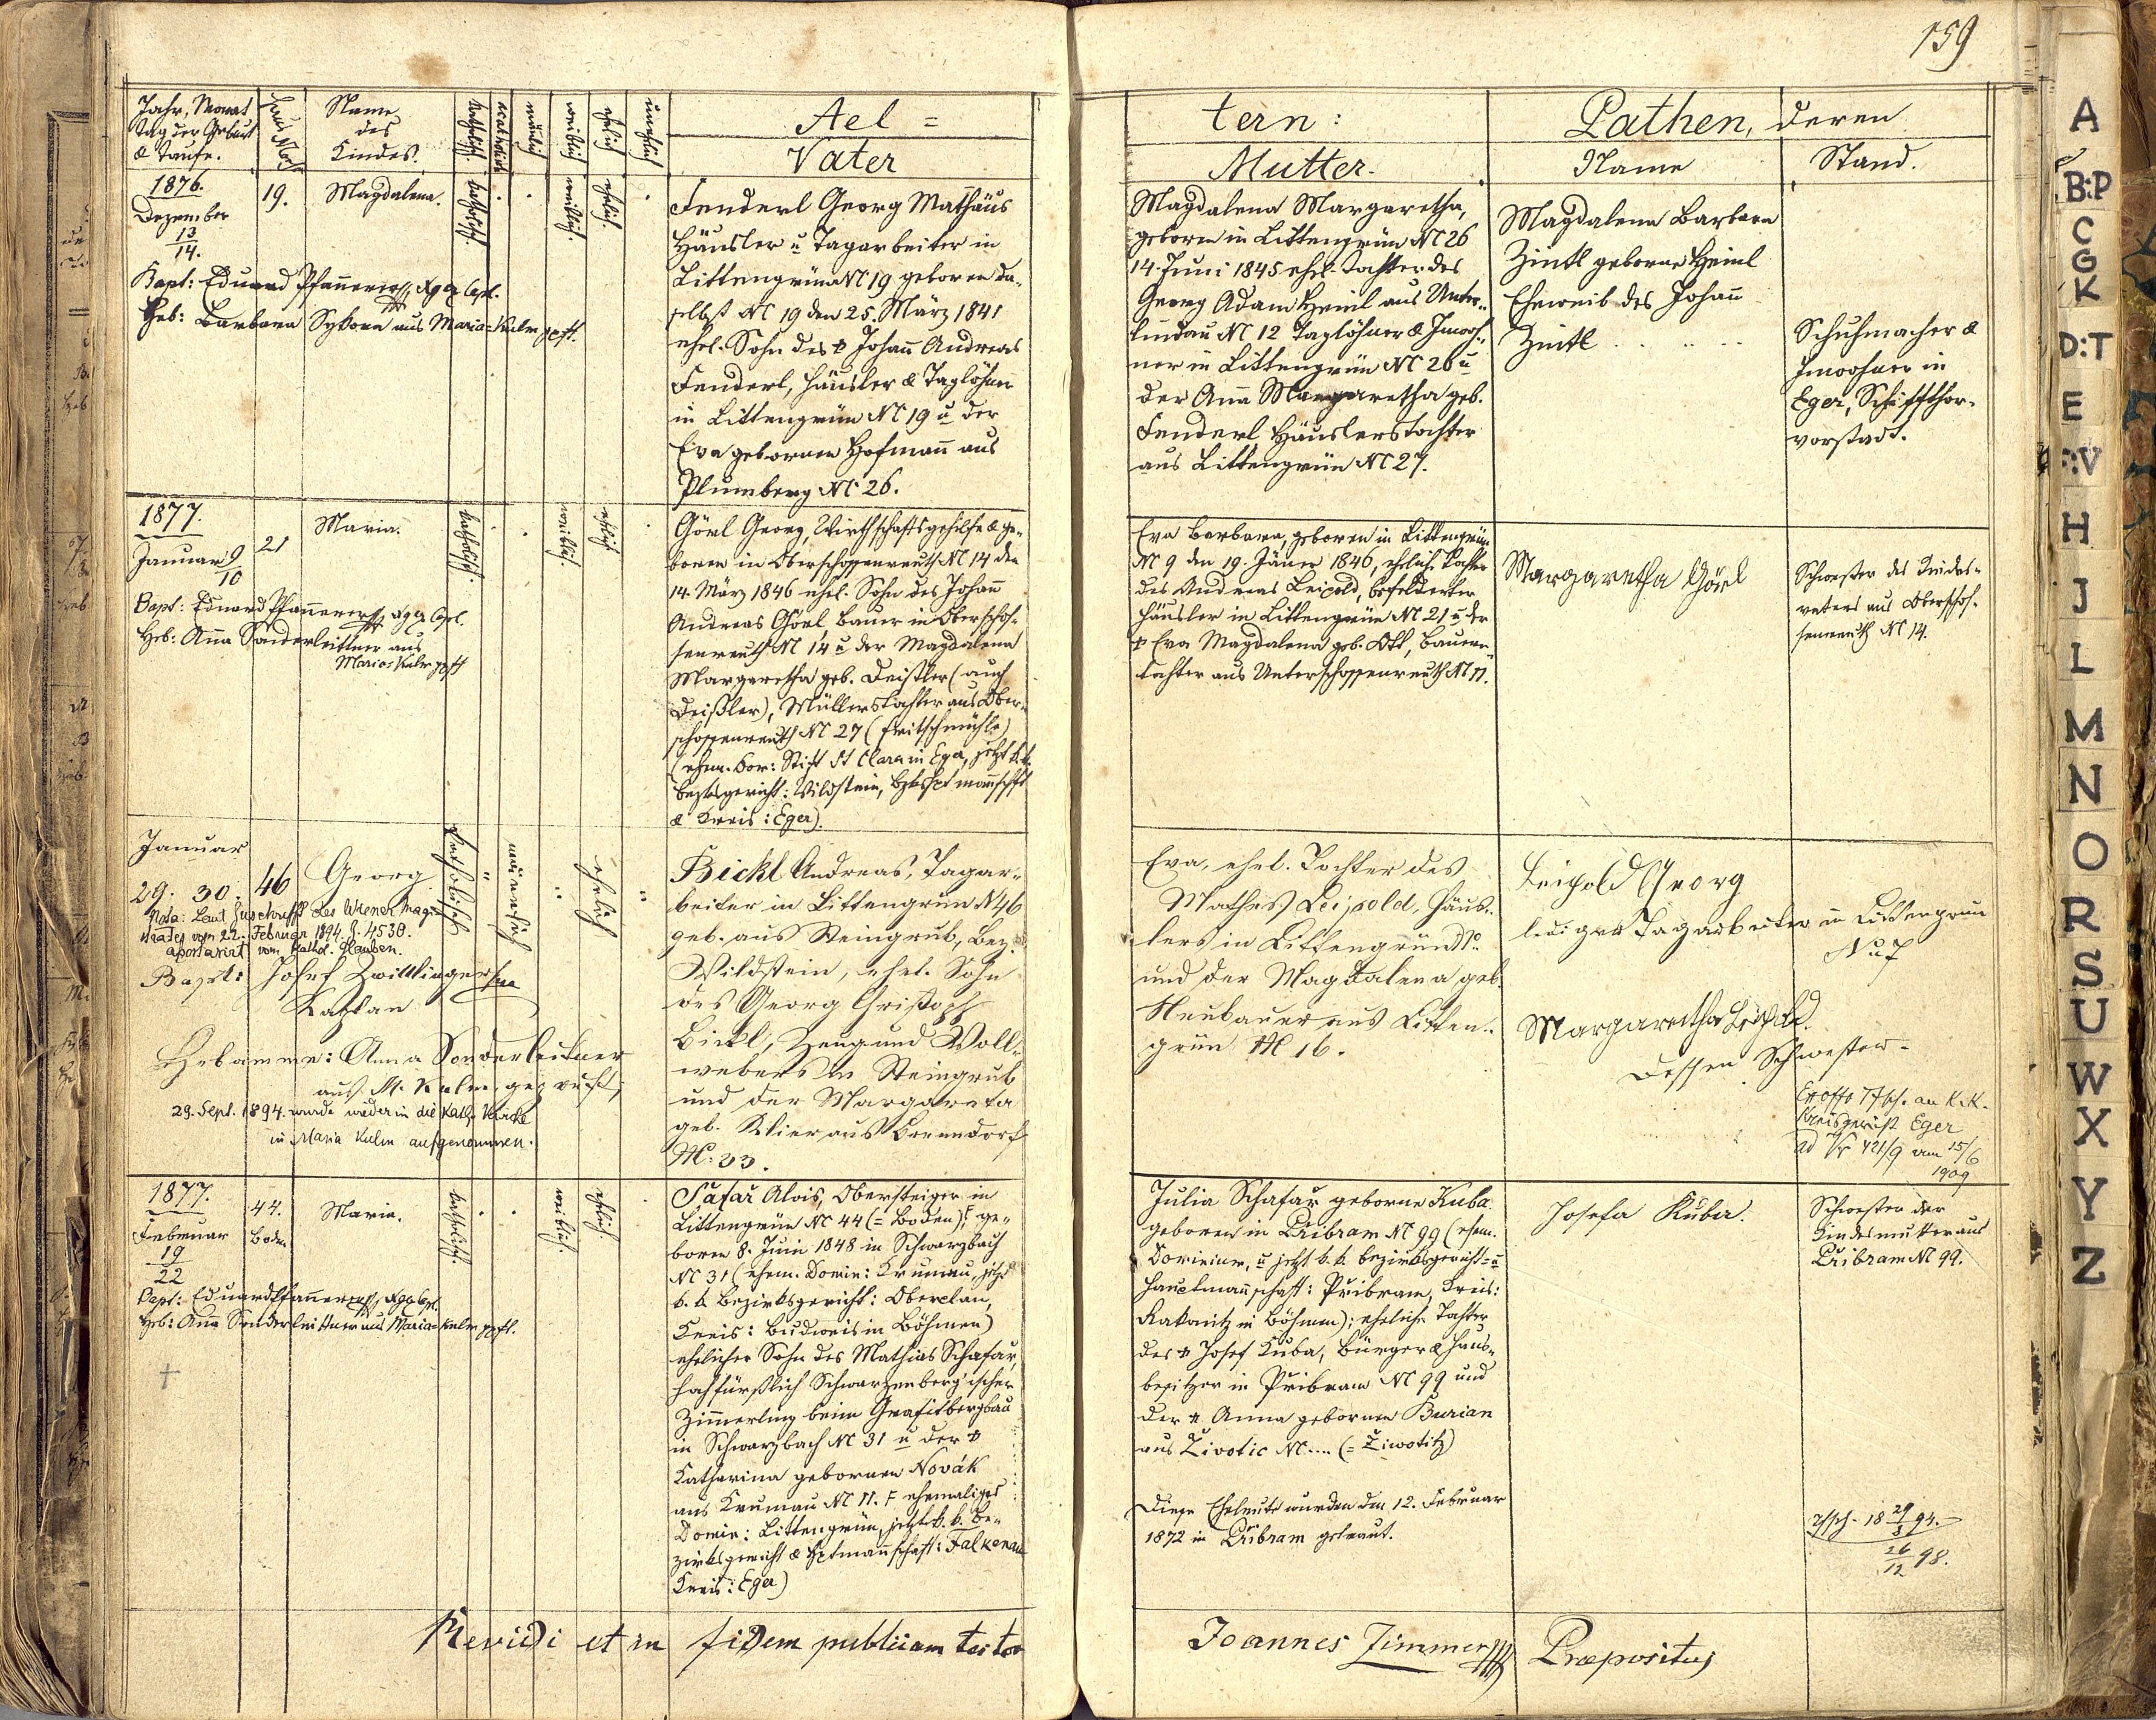 159
Jahr, Monat
Tag der Geburt
& Taufe.
Haus No
Name
des
Kindes.
katholisch.
acatholisch
mänlich
weiblich
ehelich
unehelich
Ael =
Vater
tern:
Mutter.
Pathen, deren
Name
Stand.
1876.
Dezember
13
14.
19.
Magdalena.
katholisch.
weiblich.
ehelich.
Bapt: Eduard Pfannerer
Heb: Barbara Sykora aus Maria-Kulm gepft.
Fenderl Georg Mathäus
Häusler u Tagarbeiter in
Littengrün N 19 geboren da-
selbst N 19 den 25. März 1841
ehel. Sohn des † Johann Andreas
Fenderl, Häusler & Taglöhner
in Littengrün N 19 u der
Eva gebornen Hofmann aus
Plumberg N 26.
Magdalena Margaretha,
geboren in Littengrün N 26
14. Juni 1845 ehel. Tochter des
Georg Adam Heinl aus Unter-
lindau N 12 Taglöhner & Inwoh-
ner in Littengrün N 26 u
der Anna Margaretha geb.
Fenderl Häuslerstochter
aus Littengrün N 27.
Magdalena Barbara
Zintl geborne Heinl
Eheweib des Johann
Zintl
Schuhmacher &
Inwohner in
Eger, Schiffthor-
vorstadt.
1877.
Januar 9
10
21
Maria.
katholisch.
weiblich.
ehelich
Bapt: Eduard Pfannerer
Heb: Anna Sonderleittner aus
Maria-Kulm gepft
Görl Georg, Wirthschaftsgehilfe & ge-
boren in Oberschossenreuth N 14 den
14. März 1846 ehel. Sohn des Johann
Andreas Görl Bauer in Oberschos-
senreuth N 14 u der Magdalena
Margaretha geb. Deistler (auch
Deißler), Müllerstochter aus Ober-
schossenreuth N 27 (Fritschmühle)
(ehem. Dom: Stift St Clara in Eger, jetzt k.k.
Bezksgericht: Wildstein, Bzkshptmannschft
& Kreis: Eger).
Eva Barbara, geboren in Littengrün
N 9 den 19. Jäner 1846, eheliche Tochter
des Andreas Leipold, befelderter
Häusler in Littengrün N 21 u der
† Eva Magdalena geb. Ott, Bauers-
tochter aus Unterschossenreuth N 11.
Margaretha Görl
Schwester des Kindes-
vaters aus Oberschos-
senreuth N 14.
Januar
29. 30.
46
Georg
katholisch
männlich
ehelich
Nota: Laut Zuschrift des Wiener Magi-
strates vom 22. Februar 1894 Z. 4530.
apostasirt vom kathol. Glauben.
Bapt: Josef Zwittlinger
Kaplan
Hebamme: Anna Sonderleitner
aus M. Kulm geprüft
29. Sept. 1894. wurde wieder in die kath. Kirche
in Maria Kulm aufgenommen.
Bickl Andreas, Tagar-
beiter in Littengrün N 46
geb. aus Steingrub, Bez.
Wildstein, ehel. Sohn
des Georg Christoph
Bickl, Zeug und Woll-
webers in Steingrub
und der Margareta
geb. Wier aus Berndorf
N: 33.
Eva, ehel. Tochter des
Mathes Leipold, Häus-
lers in Littengrün No
und der Magdalena geb.
Neubauer aus Litten-
grün N 16.
Leipold Georg
lediger Tagarbeiter in Littengrün
N 47
Margaretha Leipold.
dessen Schwester.
Ex offo Tfsch. an K.K.
Kreisgericht Eger
ad Vr 421/9 vom 15/6
1909
1877.
Februar
19
22
44.
Boden
Maria.
katholisch.
weiblich.
ehelich.
Bapt: Eduard Pfannerer
Heb: Anna Sonderleittner aus Maria-Kulm gepft.
Šafař Alois, Obersteiger in
Littengrün N 44 (= Boden), ge-
boren 8. Juni 1848 in Schwarzbach
N 31 (ehem. Domin: Krumau, jetzt
k.k. Bezirksgericht: Oberplan,
Kreis: Budweis in Böhmen)
ehelicher Sohn des Mathias Schafar,
hochfürstlich Schwarzenberg'ischer
Zimmerling beim Grafitbergbau
in Schwarzbach N 31 u der †
Katharina gebornen Novák
aus Krumau N 11. F ehemaliges
Domin: Littengrün, jetzt k.k. Be-
zirksgericht & Hptmannschaft: Falkenau
Kreis: Eger)
Julia Schafař geborne Kuba
geboren in Přibram N 99 (ehem.
Dominium, u jetzt k.k. Bezirksgericht- u
Hauptmannschaft: Přibram, Kreis:
Rakonitz in Böhmen); eheliche Tochter
des † Josef Kuba, Bürger & Haus-
besitzer in Přibram N 99 und
der † Anna gebornen Burian
aus Životic N .... (= Žiwotitz)
Diese Eheleute wurden den 12. Februar
1872 in Přibram getraut.
Josefa Kuba.
Schwester der
Kindesmutter aus
Přibram N 99.
Tfsch. 18 29/3 94.
26/12 98.
Revidi et in fidem publicam testor
Joannes Zimmer
Praepositus
A
B:P
C
G
K
D:T
E
F:V
H
J
L
M
N
O
R
S
U
W
X
Y
Z